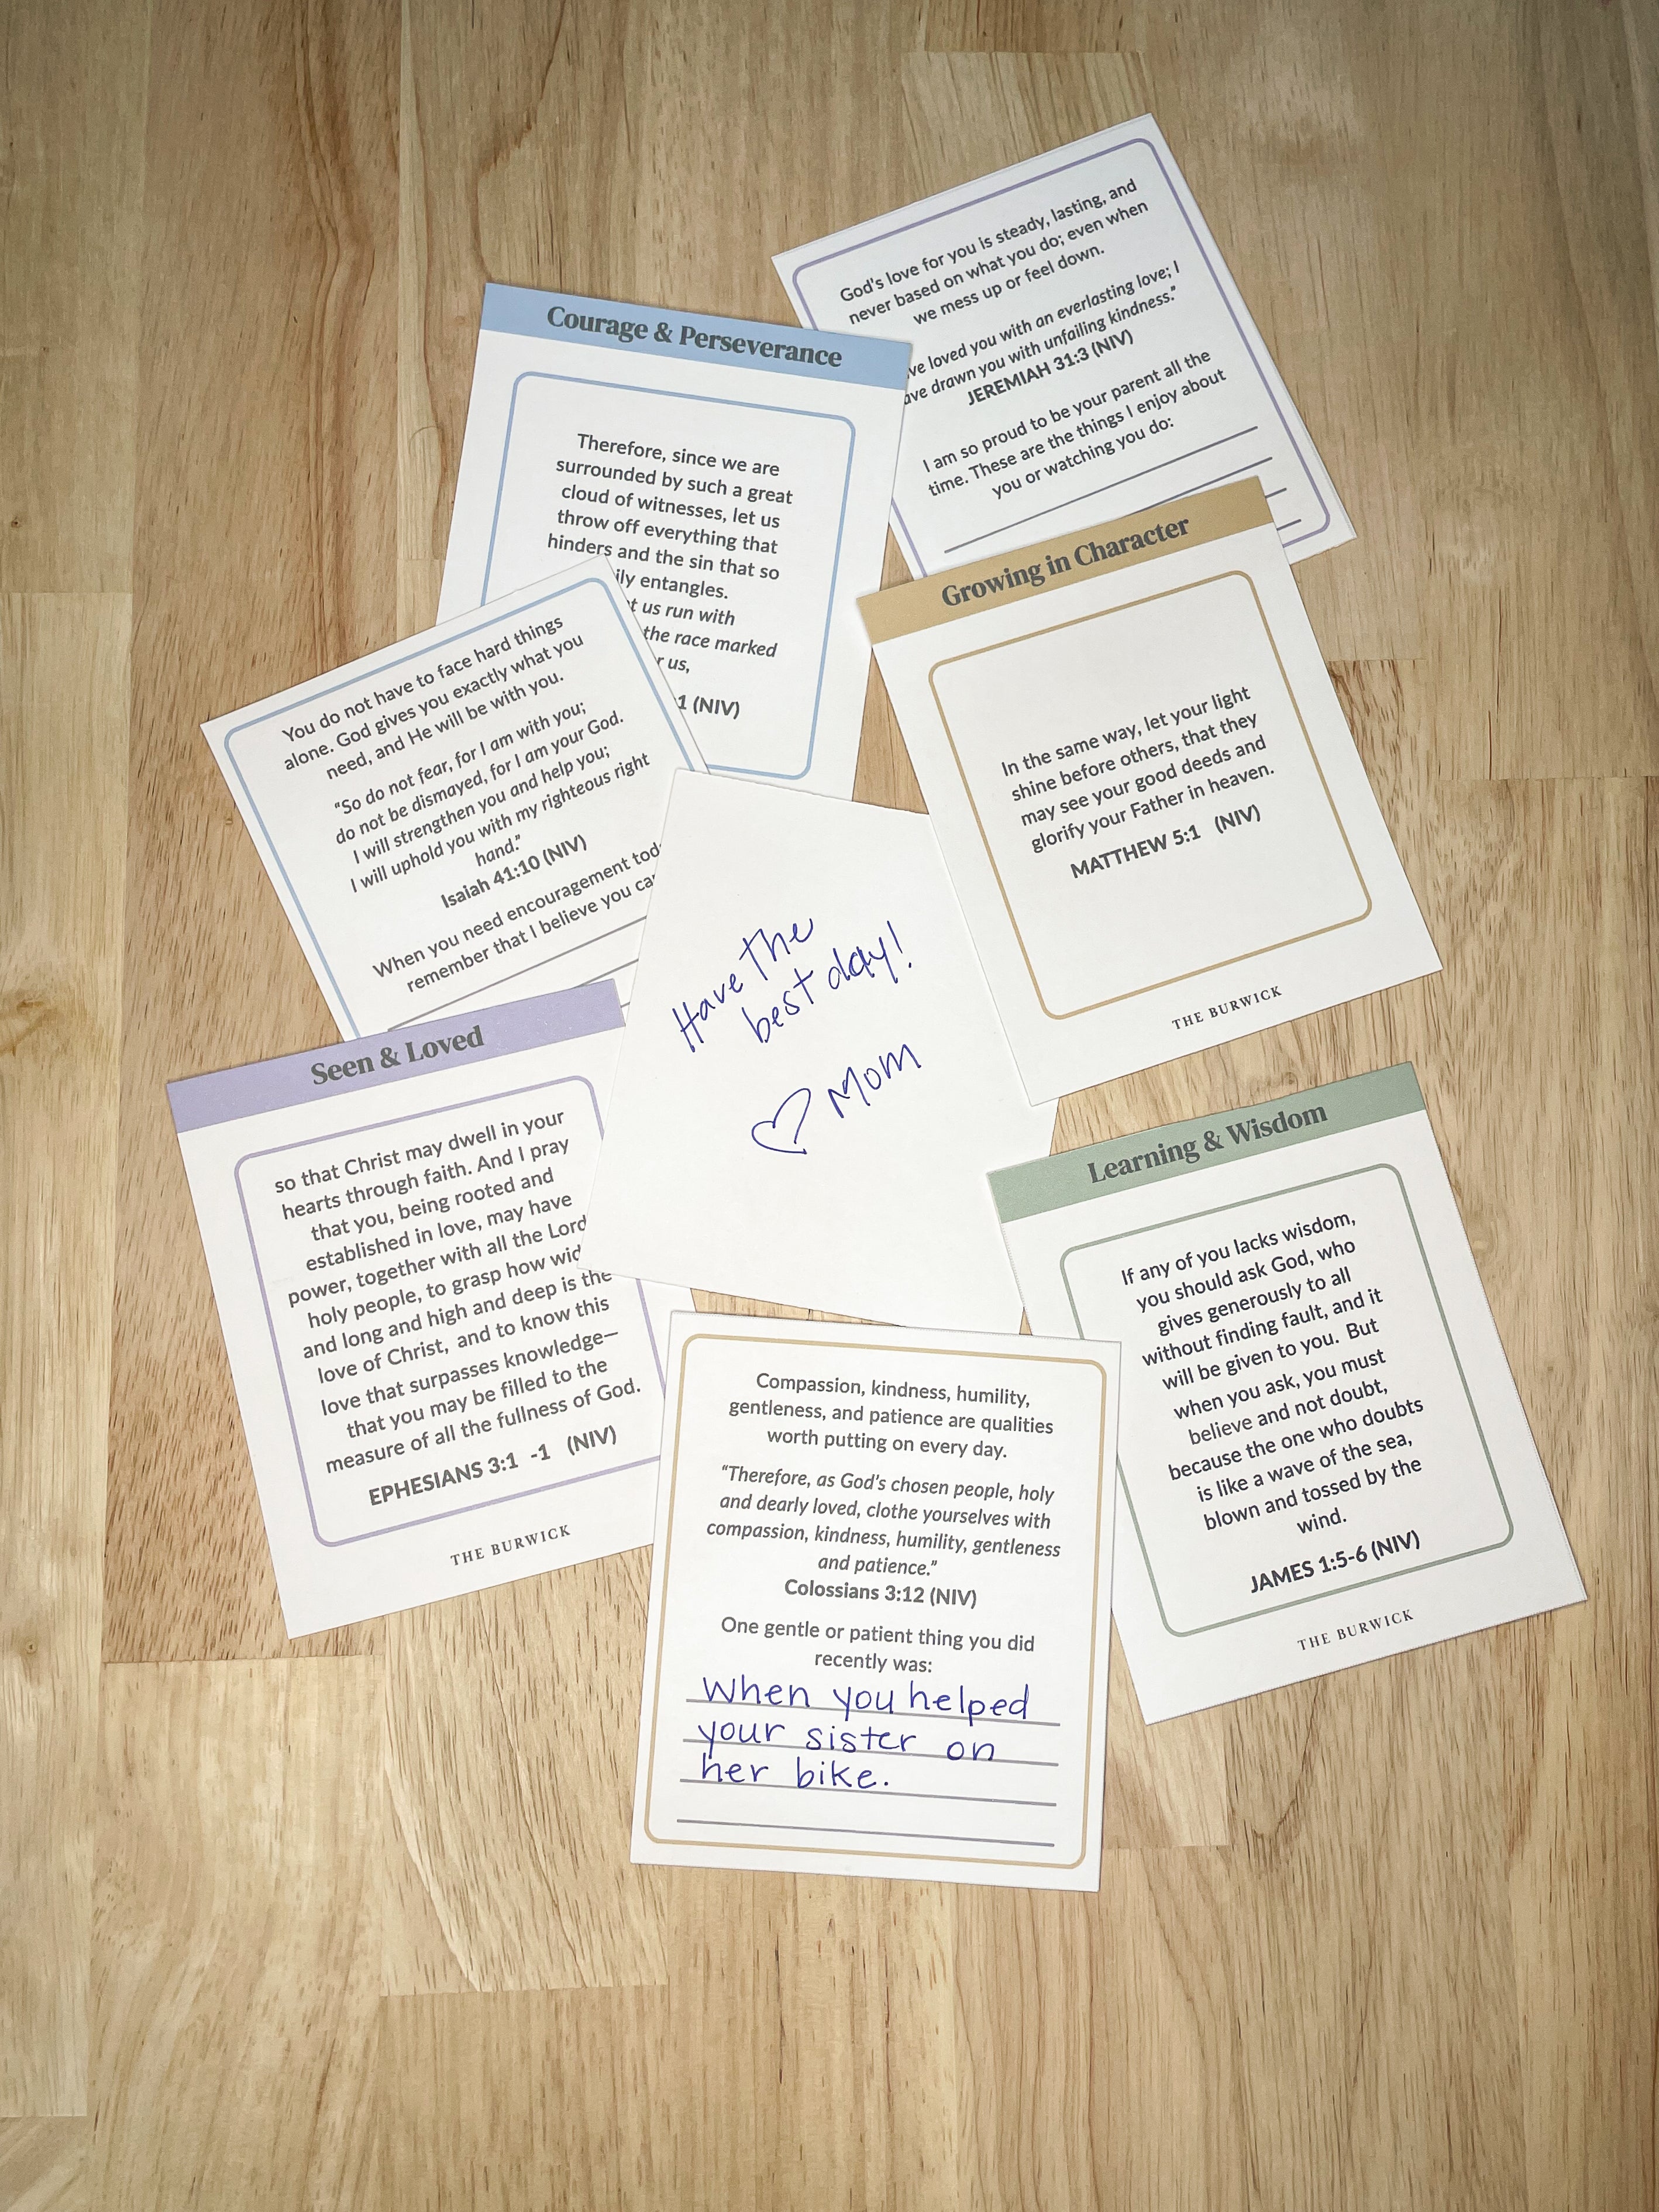 God's love for you is steady, lasting, and
never based on what you do; even when
we mess up or feel down.
loved you with an everlasting love; I
drawn you with unfailing kindness."
JEREMIAH 31:3 (NIV)
I am so proud to be your parent all the
time. These are the things I enjoy about
you or watching you do:
Courage & Perseverance
Therefore, since we are
surrounded by such a great
cloud of witnesses, let us
throw off everything that
hinders and the sin that so
entangles.
us run with
the race marked
us,
1 (NIV)
Growing in Character
In the same way, let your light
shine before others, that they
may see your good deeds and
glorify your Father in heaven.
MATTHEW 5:1 (NIV)
THE BURWICK
You do not have to face hard things
alone. God gives you exactly what you
need, and He will be with you.
"So do not fear, for I am with you;
do not be dismayed, for I am your God.
I will strengthen you and help you;
I will uphold you with my righteous right
hand."
Isaiah 41:10 (NIV)
When you need encouragement
remember that I believe you
Have the
best day!
Mom
Seen & Loved
so that Christ may dwell in your
hearts through faith. And I pray
that you, being rooted and
established in love, may have
power, together with all the Lord
holy people, to grasp how
and long and high and deep is the
love of Christ, and to know this
love that surpasses knowledge—
that you may be filled to the
measure of all the fullness of God.
EPHESIANS 3:1 -1 (NIV)
THE BURWICK
Learning & Wisdom
If any of you lacks wisdom,
you should ask God, who
gives generously to all
without finding fault, and it
will be given to you. But
when you ask, you must
believe and not doubt,
because the one who doubts
is like a wave of the sea,
blown and tossed by the
wind.
JAMES 1:5-6 (NIV)
THE BURWICK
Compassion, kindness, humility,
gentleness, and patience are qualities
worth putting on every day.
"Therefore, as God's chosen people, holy
and dearly loved, clothe yourselves with
compassion, kindness, humility, gentleness
and patience."
Colossians 3:12 (NIV)
One gentle or patient thing you did
recently was:
When you helped
your sister on
her bike.